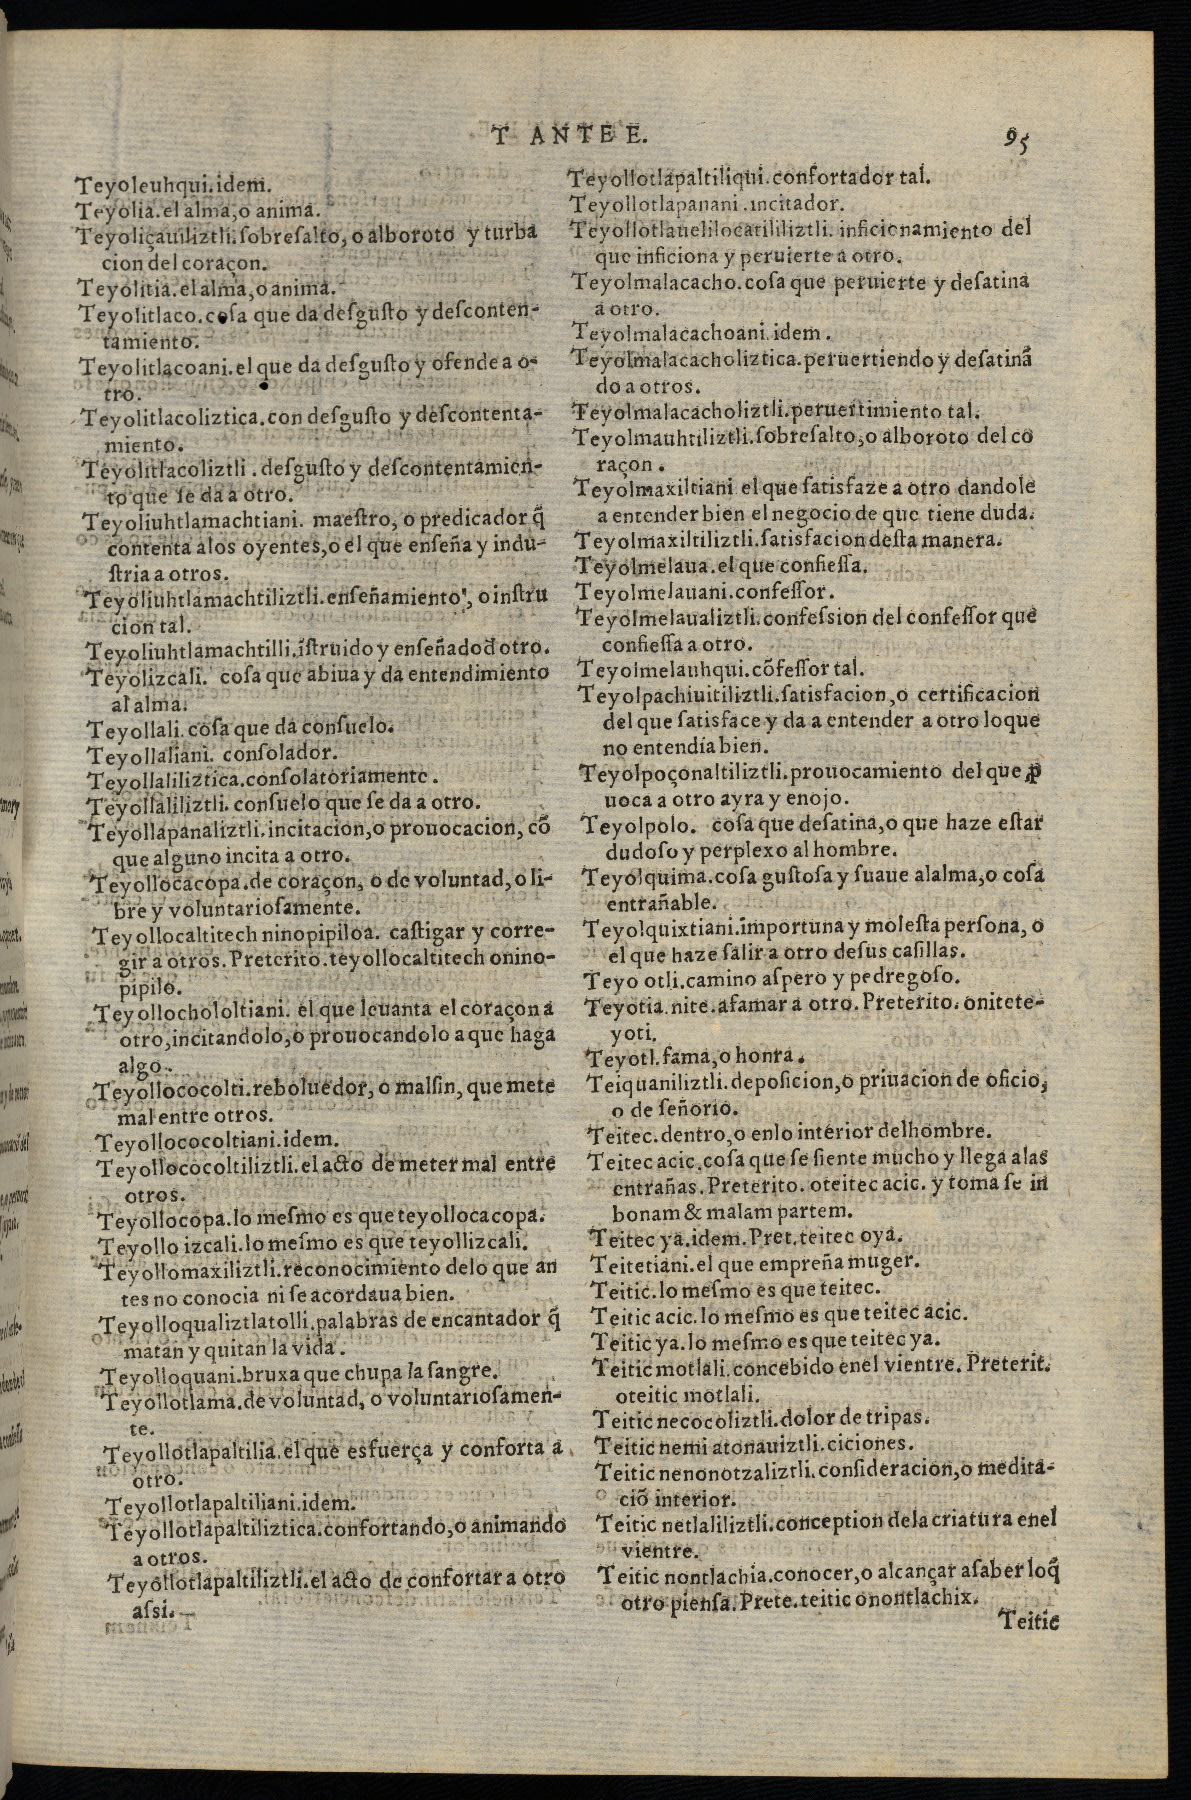 T ANTE E.
95
Teyoleuhqui.idem.
Teyolia.el alma,o anima.
Teyoliçauiliztli.ſobreſalto,o alboroto y turba
cion del coraçon.
Teyolitia.el alma,o anima.
Teyolitlaco.coſa que da deſguſto y deſconten-
tamiento.
Teyolitlacoani.el que da deſguſto y ofende a o-
tro.
Teyolitlacoliztica.con deſguſto y deſcontenta-
miento.
Teyolitlacoliztli.deſguſto y deſcontentamien-
to que ſe da a otro.
Teyoliuhtlamachtiani. maeſtro, o predicador q̃
contenta alos oyentes,o el que enſeña y indu-
ſtria a otros.
Teyoliuhtlamachtiliztli.enſeñamiento, o inſtru
cion tal.
Teyoliuhtlamachtilli.ĩſtruido y enſeñado đ otro.
Teyolizcali. coſa que abiua y da entendimiento
al alma.
Teyollali.coſa que da conſuelo.
Teyollaliani. conſolador.
Teyollaliliztica.conſolatoriamente.
Teyollaliliztli.conſuelo que ſe da a otro.
Teyollapanaliztli.incitacion,o prouocacion, cõ
que alguno incita a otro.
Teyollocacopa.de coraçon, o de voluntad,o li-
bre y voluntarioſamente.
Teyollocaltitech ninopipiloa. caſtigar y corre-
gir a otros.Preterito.teyollocaltitech onino-
pipilo.
Teyollochololtiani. el que leuanta el coraçon a
otro,incitandolo,o prouocandolo a que haga
algo.
Teyollococolti.reboluedor, o malſin, que mete
mal entre otros.
Teyollococoltiani.idem.
Teyollococoltiliztli.el acto de meter mal entre
otros.
Teyollocopa.lo meſmo es que teyollocacopa.
Teyollo izcali.lo meſmo es que teyollizcali.
Teyollomaxiliztli.reconocimiento delo que an
tes no conocia ni ſe acordaua bien.
Teyolloqualiztlatolli.palabras de encantador q̃
matan y quitan la vida.
Teyolloquani.bruxa que chupa la ſangre.
Teyollotlama.de voluntad, o voluntarioſamen-
te.
Teyollotlapaltilia.el que esfuerça y conforta a
otro.
Teyollotlapaltiliani.idem.
Teyollotlapaltiliztica.confortando,o animando
a otros.
Teyollotlapaltiliztli.el acto de confortar a otro
aſsi.
Teyollotlapaltiliqui.confortador tal.
Teyollotlapanani.incitador.
Teyollotlauelilocatililiztli. inficionamiento del
que inficiona y peruierte a otro.
Teyolmalacacho.coſa que peruierte y deſatina
a otro.
Teyolmalacachoani.idem.
Teyolmalacacholiztica.peruertiendo y deſatinã
do a otros.
Teyolmalacacholiztli.peruertimiento tal.
Teyolmauhtiliztli.ſobreſalto,o alboroto del co
raçon.
Teyolmaxiltiani el que ſatisfaze a otro dandole
a entender bien el negocio de que tiene duda.
Teyolmaxiltiliztli.ſatisfacion deſta manera.
Teyolmelaua.el que confieſſa.
Teyolmelauani.confeſſor.
Teyolmelaualiztli.confeſsion del confeſſor que
confieſſa a otro.
Teyolmelauhqui.cõfeſſor tal.
Teyolpachiuitiliztli.ſatisfacion,o certificacion
del que ſatisface y da a entender a otro loque
no entendía bien.
Teyolpoçonaltiliztli.prouocamiento del que ꝓ
uoca a otro ayra y enojo.
Teyolpolo. coſa que deſatina,o que haze eſtar
dudoſo y perplexo al hombre.
Teyolquima.coſa guſtoſa y ſuaue al alma,o coſa
entrañable.
Teyolquixtiani.ĩmportuna y moleſta perſona, o
el que haze ſalir a otro deſus caſillas.
Teyo otli.camino aſpero y pedregoſo.
Teyotia.nite.afamar a otro.Preterito.onitete-
yoti.
Teyotl.fama,o honra.
Teiquaniliztli.depoſicion,o priuacion de oficio,
o de ſeñorio.
Teitec.dentro,o enlo interior delhombre.
Teitec acic.coſa que ſe ſiente mucho y llega alas
entrañas.Preterito.oteitec acic. y toma ſe in
bonam & malam partem.
Teitec ya.idem.Pret.teitec oya.
Teitetiani.el que empreña muger.
Teitic.lo meſmo es que teitec.
Teitic acic.lo meſmo es que teitec acic.
Teitic ya.lo meſmo es que teitec ya.
Teitic motlali.concebido enel vientre.Preterit.
oteitic motlali.
Teitic necocoliztli.dolor de tripas.
Teitic nemi atonauiztli.ciciones.
Teitic nenonotzaliztli.conſideracion,o medita-
ciõ interior.
Teitic netlaliliztli.conception dela criatura enel
vientre.
Teitic nontlachia.conocer,o alcançar aſaber loq̃
otro pienſa.Prete.teitic onontlachix.
Teitic